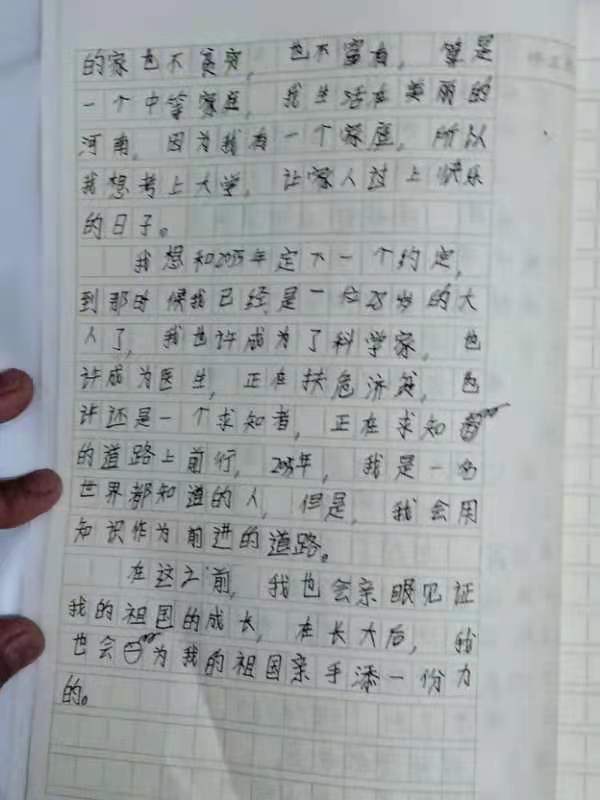 的家也不贫穷，也不富有，算是
一个中等家庭，我生活在美丽的
河南，因为我有一个家庭，所以
我想考上大学，让家人过上快乐
的日子。
我想和2035年定下一个约定，
到那时候我已经是一位28岁的大
人了，我也许成为了科学家，也
许成为医生，正在扶危济贫，也
许还是一个求知者，正在求知
的道路上前行，2035年，我是一名
世界都知道的人，但是，我会用
知识作为前进的道路。
在这之前，我也会亲眼见证
我的祖国的成长，在长大后，我
也会为我的祖国亲手添一份力
的。